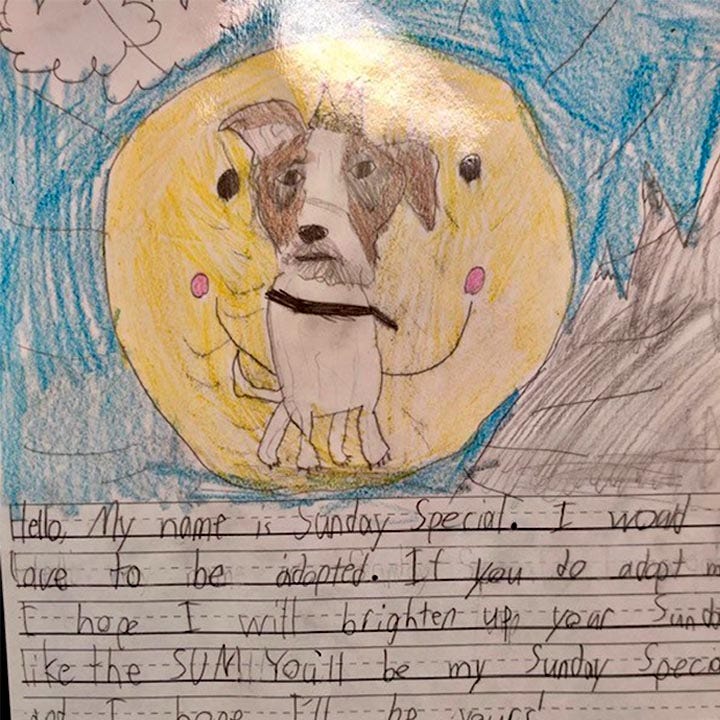 Hello, My name is Sunday Special. I woud
lave to be adopted. If you do adopt m
I hope I will brighten up year Sunda
like the SUM! You'll be my Sunday Specia
and I hope I'll be yours!